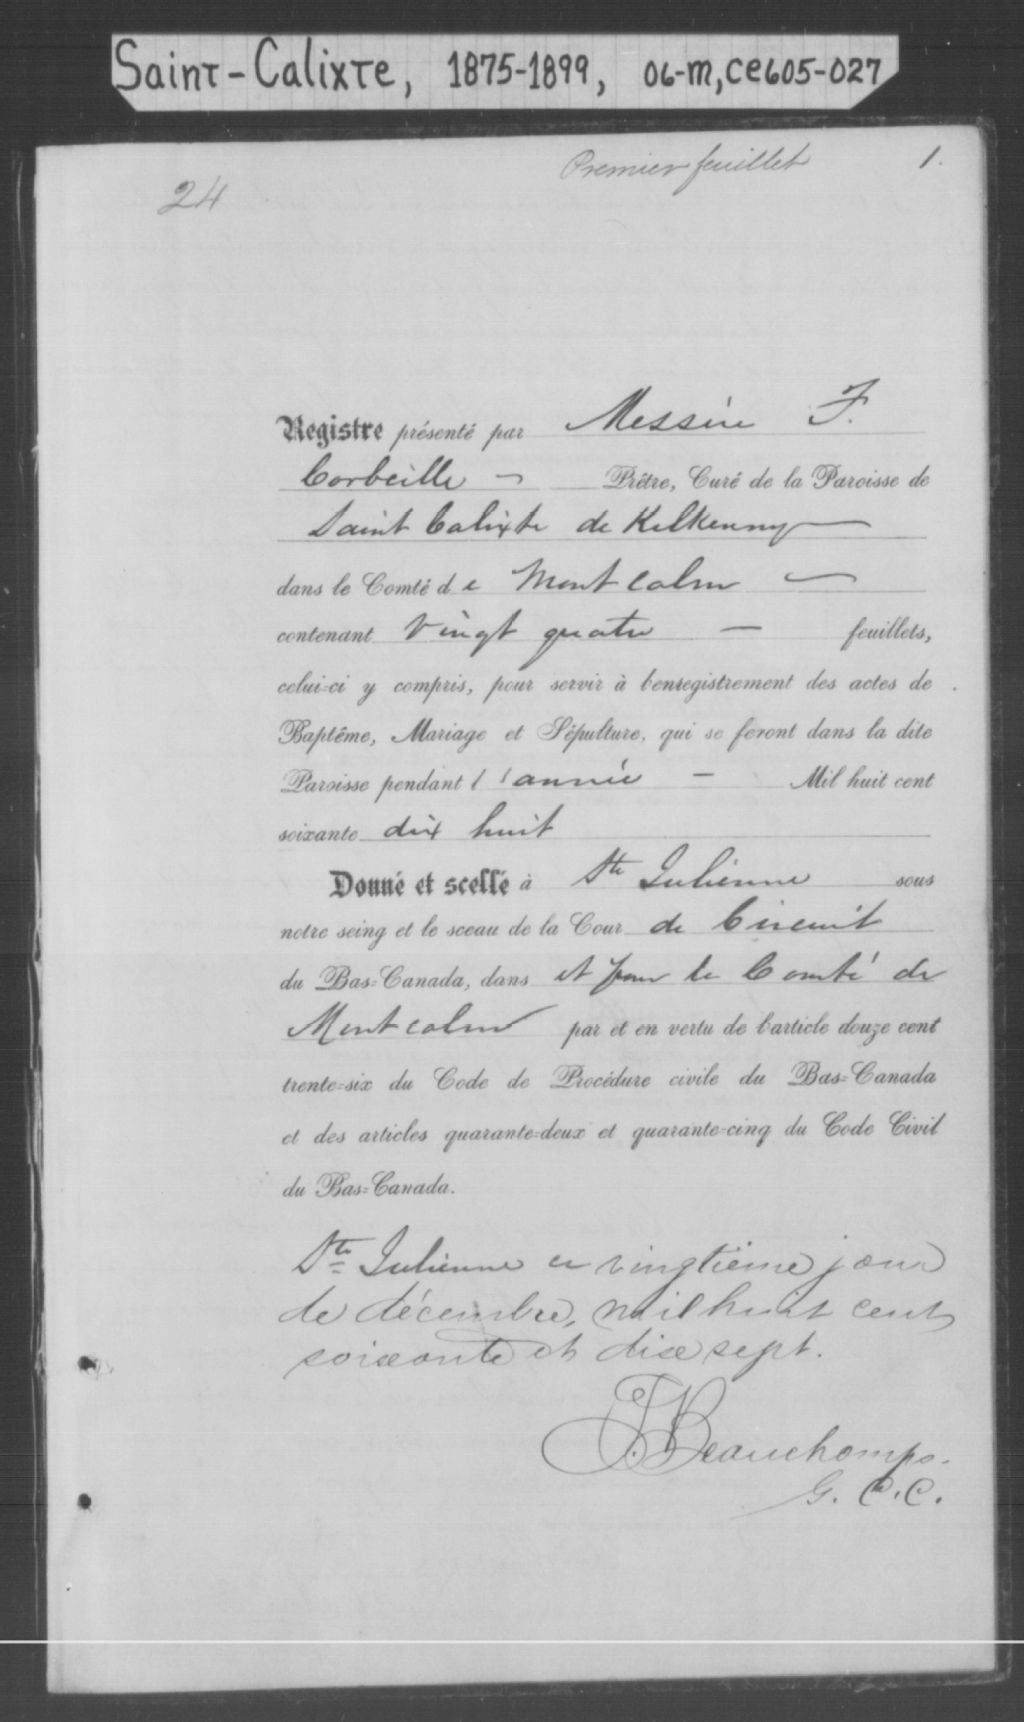 Saint-Calixte, 1875-1899, 06-M, CE605-027
Premier feuillet 1.
24
Registre présenté par Messire F.
Corbeille - Prêtre, Curé de la Paroisse de
Saint Calixte de Kilkenny -
dans le Comté de Montcalm -
contenant Vingt quatre - feuillets,
celui-ci y compris, pour servir à l'enregistrement des actes de
Baptême, Mariage et Sépulture, qui se feront dans la dite
Paroisse pendant l'année - Mil huit cent
soixante dix huit
Donné et scellé à Ste Julienne sous
notre seing et le sceau de la Cour de Circuit
du Bas-Canada, dans et pour le Comté de
Montcalm par et en vertu de l'article douze cent
trente-six du Code de Procédure civile du Bas-Canada
et des articles quarante-deux et quarante-cinq du Code Civil
du Bas-Canada.
Ste Julienne ce vingtième jour
de décembre, mil huit cent
soixante et dix sept.
J. Beauchamps.
G. C. C.